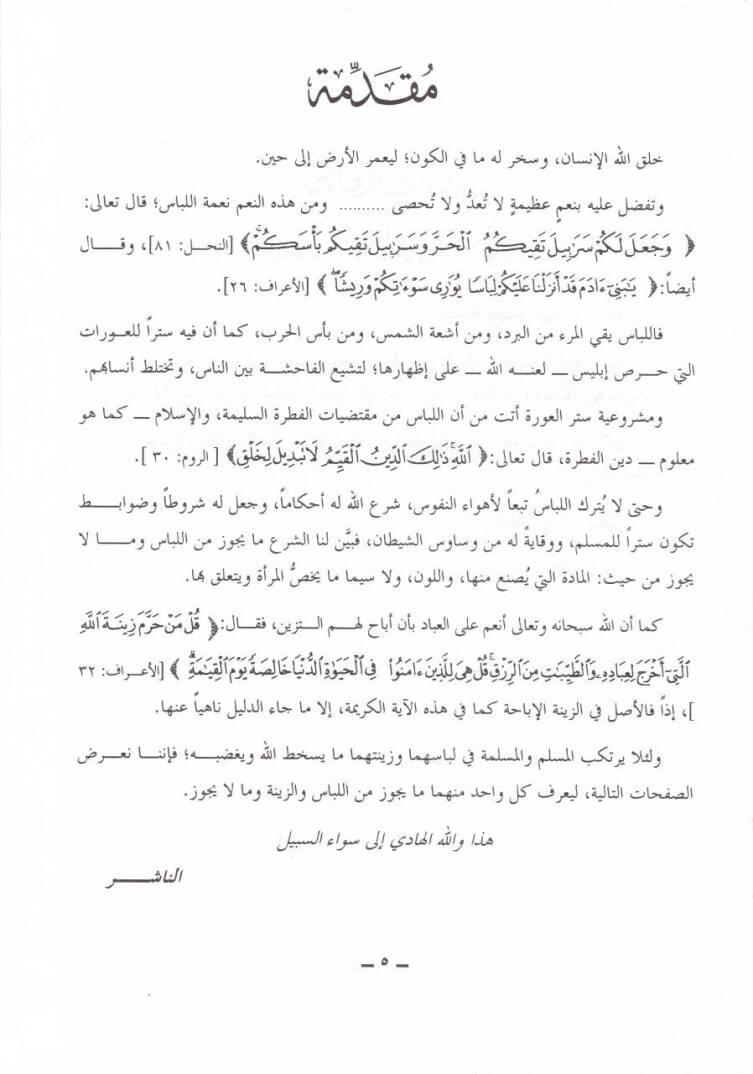 مُقَدِّمة
خلق الله الإنسان، وسخر له ما في الكون؛ ليعمر الأرض إلى حين.
وتفضل عليه بنعم عظيمةٍ لا تُعدُّ ولا تُحصى .......... ومن هذه النعم نعمة اللباس؛ قال تعالى:
﴿ وَجَعَلَ لَكُمْ سَرَٰبِيلَ تَقِيكُمُ ٱلْحَرَّ وَسَرَٰبِيلَ تَقِيكُم بَأْسَكُمْ ۚ ﴾ [النحل: ٨١]، وقــال
أيضاً: ﴿ يَٰبَنِىٓ ءَادَمَ قَدْ أَنزَلْنَا عَلَيْكُمْ لِبَاسًا يُوَٰرِى سَوْءَٰتِكُمْ وَرِيشًا ۖ ﴾ [الأعراف: ٢٦].
فاللباس يقي المرء من البرد، ومن أشعة الشمس، ومن بأس الحرب، كما أن فيه ستراً للعورات
التي حــرص إبليس ــ لعنــه الله ــ على إظهارها؛ لتشيع الفاحشة بين الناس، وتختلط أنسابهم.
ومشروعية ستر العورة أتت من أن اللباس من مقتضيات الفطرة السليمة، والإسلام ــ كما هو
معلوم ــ دين الفطرة، قال تعالى: ﴿ ٱللَّهِ ۚ ذَٰلِكَ ٱلدِّينُ ٱلْقَيِّمُ لَا تَبْدِيلَ لِخَلْقِ ﴾ [ الروم: ٣٠ ].
وحتى لا يُترك اللباسُ تبعاً لأهواء النفوس، شرع الله له أحكاماً، وجعل له شروطاً وضوابــط
تكون ستراً للمسلم، ووقايةً له من وساوس الشيطان، فبيَّن لنا الشرع ما يجوز من اللباس ومــا لا
يجوز من حيث: المادة التي يُصنع منها، واللون، ولا سيما ما يخصُّ المرأة ويتعلق بها.
كما أن الله سبحانه وتعالى أنعم على العباد بأن أباح لهــم التزين، فقــال: ﴿ قُلْ مَنْ حَرَّمَ زِينَةَ ٱللَّهِ
ٱلَّتِىٓ أَخْرَجَ لِعِبَادِهِۦ وَٱلطَّيِّبَٰتِ مِنَ ٱلرِّزْقِ ۚ قُلْ هِىَ لِلَّذِينَ ءَامَنُوا۟ فِى ٱلْحَيَوٰةِ ٱلدُّنْيَا خَالِصَةً يَوْمَ ٱلْقِيَٰمَةِ ۗ ﴾ [الأعراف: ٣٢
]، إذاً فالأصل في الزينة الإباحة كما في هذه الآية الكريمة، إلا ما جاء الدليل ناهياً عنها.
ولئلا يرتكب المسلم والمسلمة في لباسهما وزينتهما ما يسخط الله ويغضبــه؛ فإننــا نعــرض
الصفحات التالية، ليعرف كل واحد منهما ما يجوز من اللباس والزينة وما لا يجوز.
هذا والله الهادي إلى سواء السبيل
الناشــــر
ــ ٥ ــ